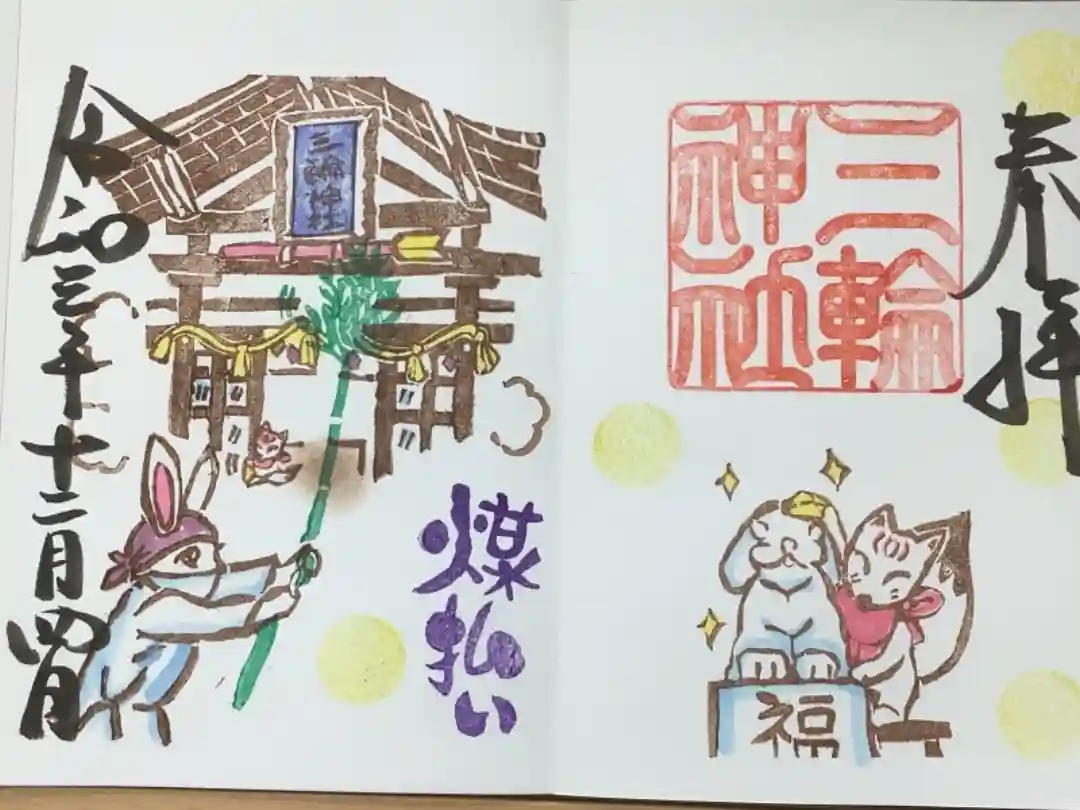 奉拝
三輪
神社
福
三輪神社
煤払い
令和三年十二月四日